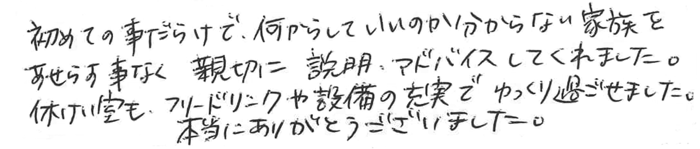 初めての事だらけで、何からしていいのか分からない家族を
あせらす事なく 親切に 説明・アドバイスしてくれました。
休けい室も、フリードリンクや設備の充実で ゆっくり過ごせました。
本当にありがとうございました。